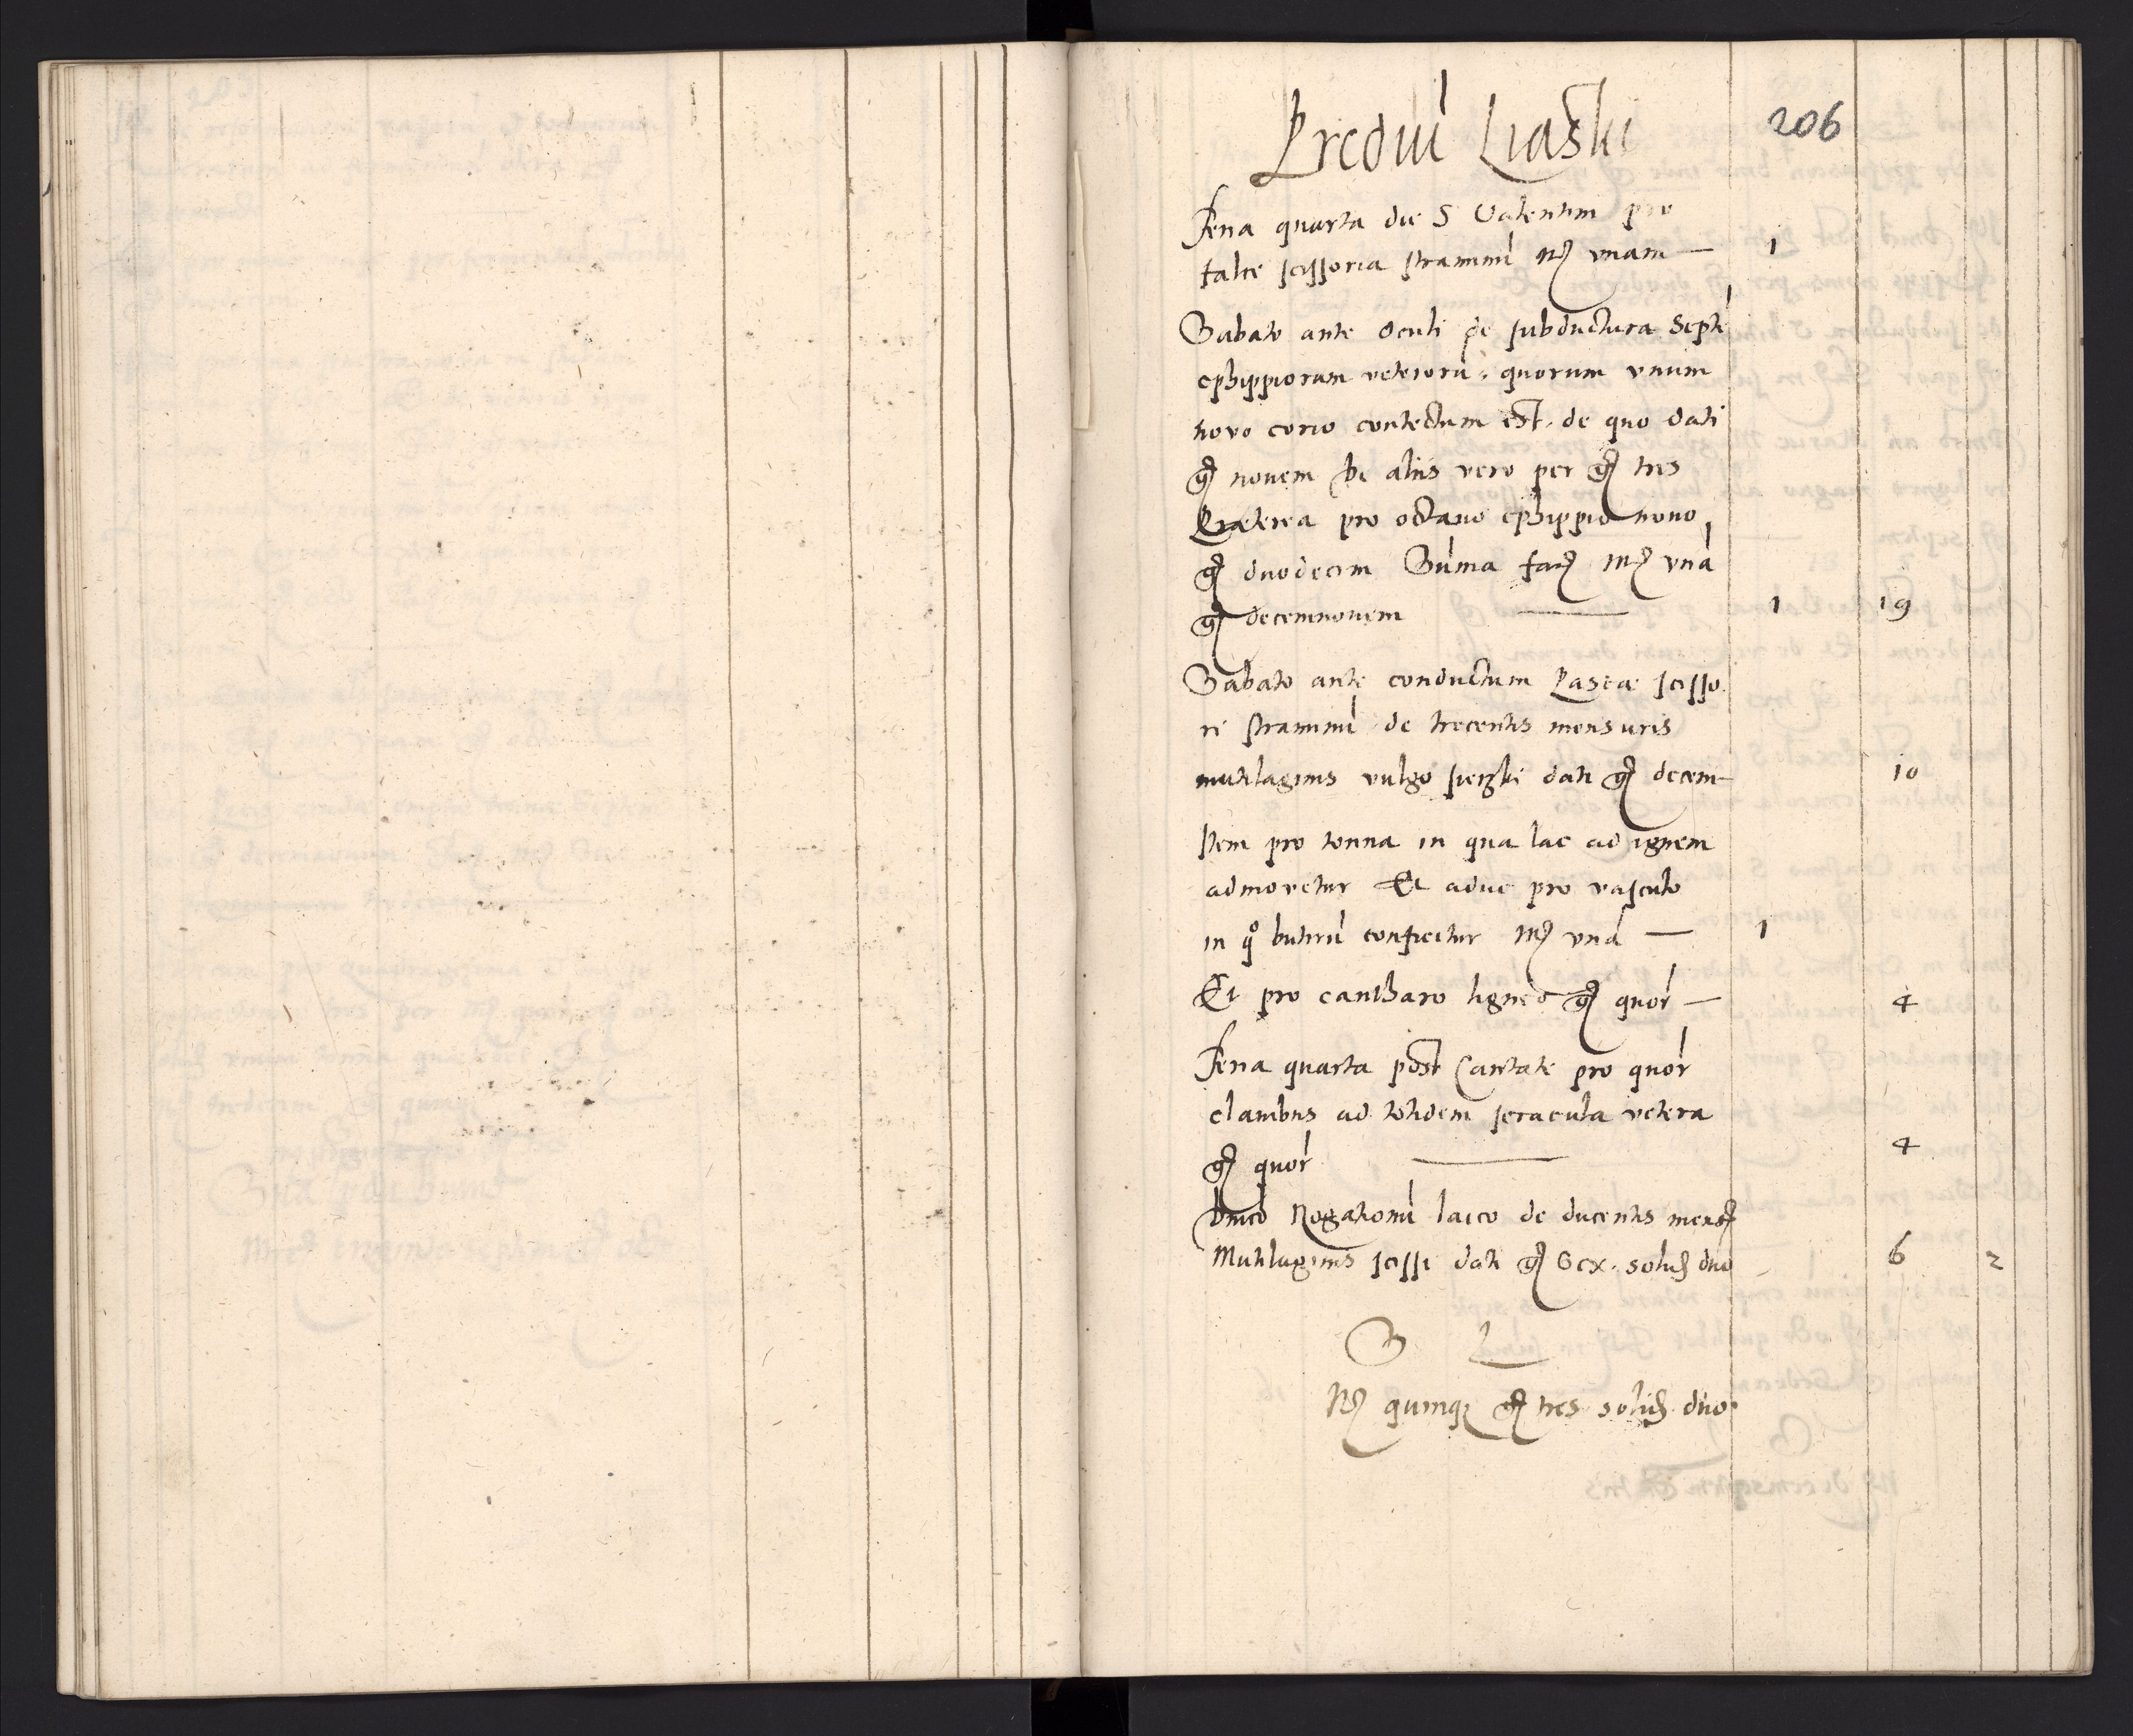 Prediu Liaski
206
Feria quarta die S Valentini pro
falce scissoria straminu mr unam — 1
Sabato ante Oculi de subductura Septe
ephippioram veterioru. quorum unum
novo corio contectum est. de quo dati
gr novem de aliis vero per gr tres
Præterea pro octavo ephippio nono
gr duodecim Suma fac mr unã
gr decemnovem — 1 19
Sabato ante conductum Pascæ scisso
ri straminu de trecentis mensuris
mutilaginis vulgo sieczki dati gr decem 10
Item pro tonna in qua lac ad ignem
admovetur Et aduc pro vasculo
in qo butiru conficitur mr unã — 1
Et pro cantharo ligneo gr quor — 4
Feria quarta post Cantate pro quor
clavibus ad totidem seracula vetera
gr quor — 4
Dnico Rogationu laico de ducentis mens
Mutilaginis scissi dati gr sex. solid duo 6 2
S L
Mr quinq gr tres solid duo